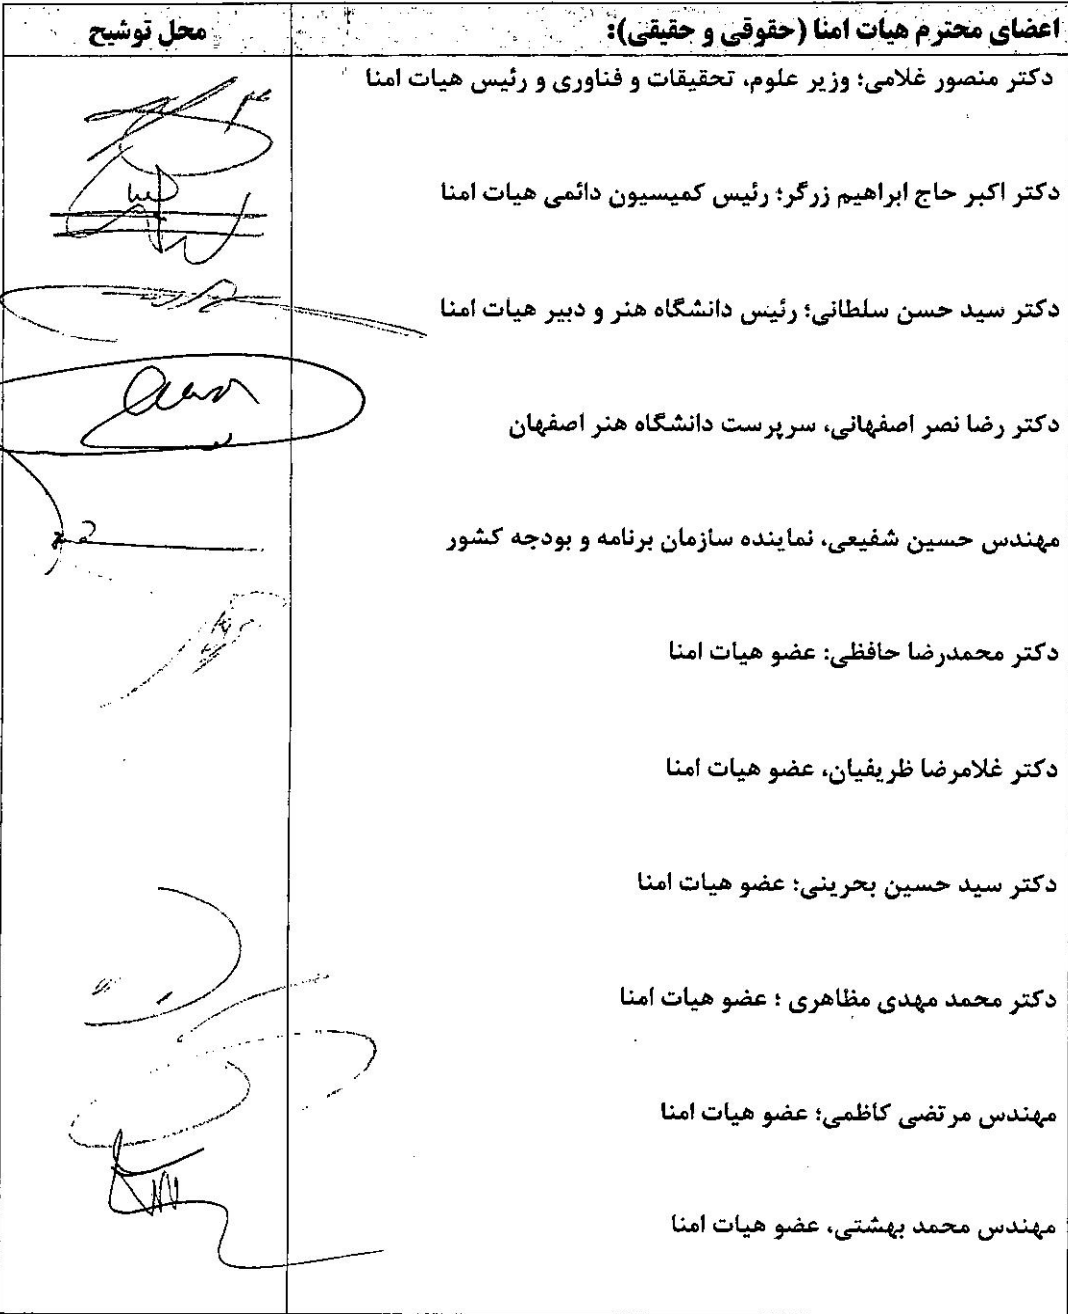 اعضای محترم هیات امنا (حقوقی و حقیقی):
محل توشیح
دکتر منصور غلامی؛ وزیر علوم، تحقیقات و فناوری و رئیس هیات امنا
دکتر اکبر حاج ابراهیم زرگر؛ رئیس کمیسیون دائمی هیات امنا
دکتر سید حسن سلطانی؛ رئیس دانشگاه هنر و دبیر هیات امنا
دکتر رضا نصر اصفهانی، سرپرست دانشگاه هنر اصفهان
مهندس حسین شفیعی، نماینده سازمان برنامه و بودجه کشور
دکتر محمدرضا حافظی؛ عضو هیات امنا
دکتر غلامرضا ظریفیان، عضو هیات امنا
دکتر سید حسین بحرینی؛ عضو هیات امنا
دکتر محمد مهدی مظاهری ؛ عضو هیات امنا
مهندس مرتضی کاظمی؛ عضو هیات امنا
مهندس محمد بهشتی، عضو هیات امنا